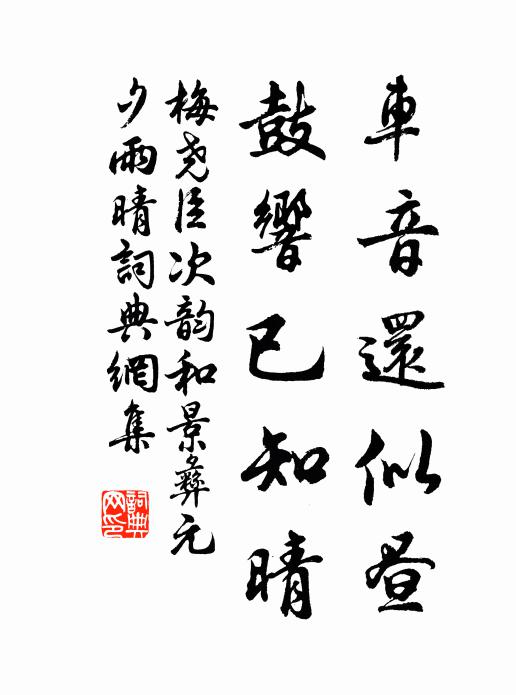 車音還似昼
鼓響已知晴
梅尧臣次韵和景彝元
夕雨晴詞典網集
詞典
网印